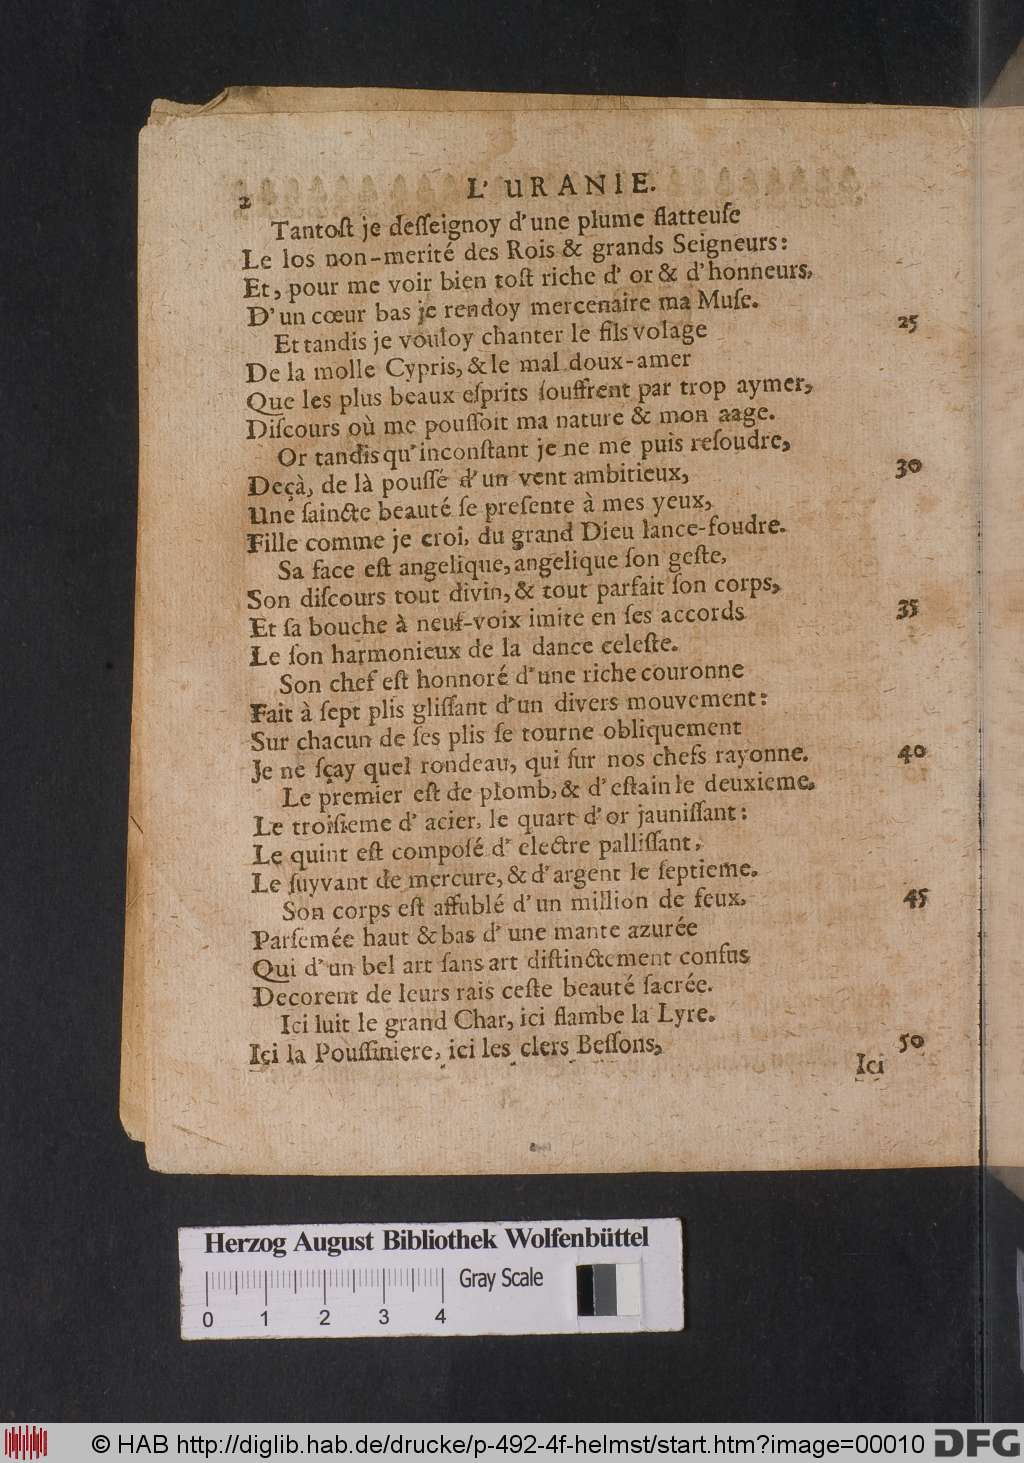 2
L' URANIE.
Tantoſt je deſſeignoy d'une plume flatteuſe
Le los non-merité des Rois & grands Seigneurs:
Et, pour me voir bien toſt riche d' or & d'honneurs,
D'un cœur bas je rendoy mercenaire ma Muſe.
Et tandis je vouloy chanter le fils volage 25
De la molle Cypris, & le mal doux-amer
Que les plus beaux eſprits ſouffrent par trop aymer,
Diſcours où me pouſſoit ma nature & mon aage.
Or tandis qu'inconſtant je ne me puis reſoudre,
Deçà, de là pouſſé d'un vent ambitieux, 30
Une ſaincte beauté ſe preſente à mes yeux,
Fille comme je croi, du grand Dieu lance-foudre.
Sa face eſt angelique, angelique ſon geſte,
Son diſcours tout divin, & tout parfait ſon corps,
Et ſa bouche à neuf-voix imite en ſes accords 35
Le ſon harmonieux de la dance celeſte.
Son chef eſt honnoré d'une riche couronne
Fait à ſept plis gliſſant d'un divers mouvement:
Sur chacun de ſes plis ſe tourne obliquement
Je ne ſçay quel rondeau, qui ſur nos chefs rayonne. 40
Le premier eſt de plomb, & d'eſtain le deuxieme,
Le troiſieme d' acier, le quart d'or jauniſſant:
Le quint eſt compoſé d' electre palliſſant,
Le ſuyvant de mercure, & d'argent le ſeptieme.
Son corps eſt affublé d'un million de feux, 45
Parſemée haut & bas d' une mante azurée
Qui d'un bel art ſans art diſtinctement confus
Decorent de leurs rais ceſte beauté ſacrée.
Ici luit le grand Char, ici flambe la Lyre.
Ici la Pouſſiniere, ici les clers Beſſons, 50
Ici
Herzog August Bibliothek Wolfenbüttel
Gray Scale
0 1 2 3 4
© HAB http://diglib.hab.de/drucke/p-492-4f-helmst/start.htm?image=00010
DFG